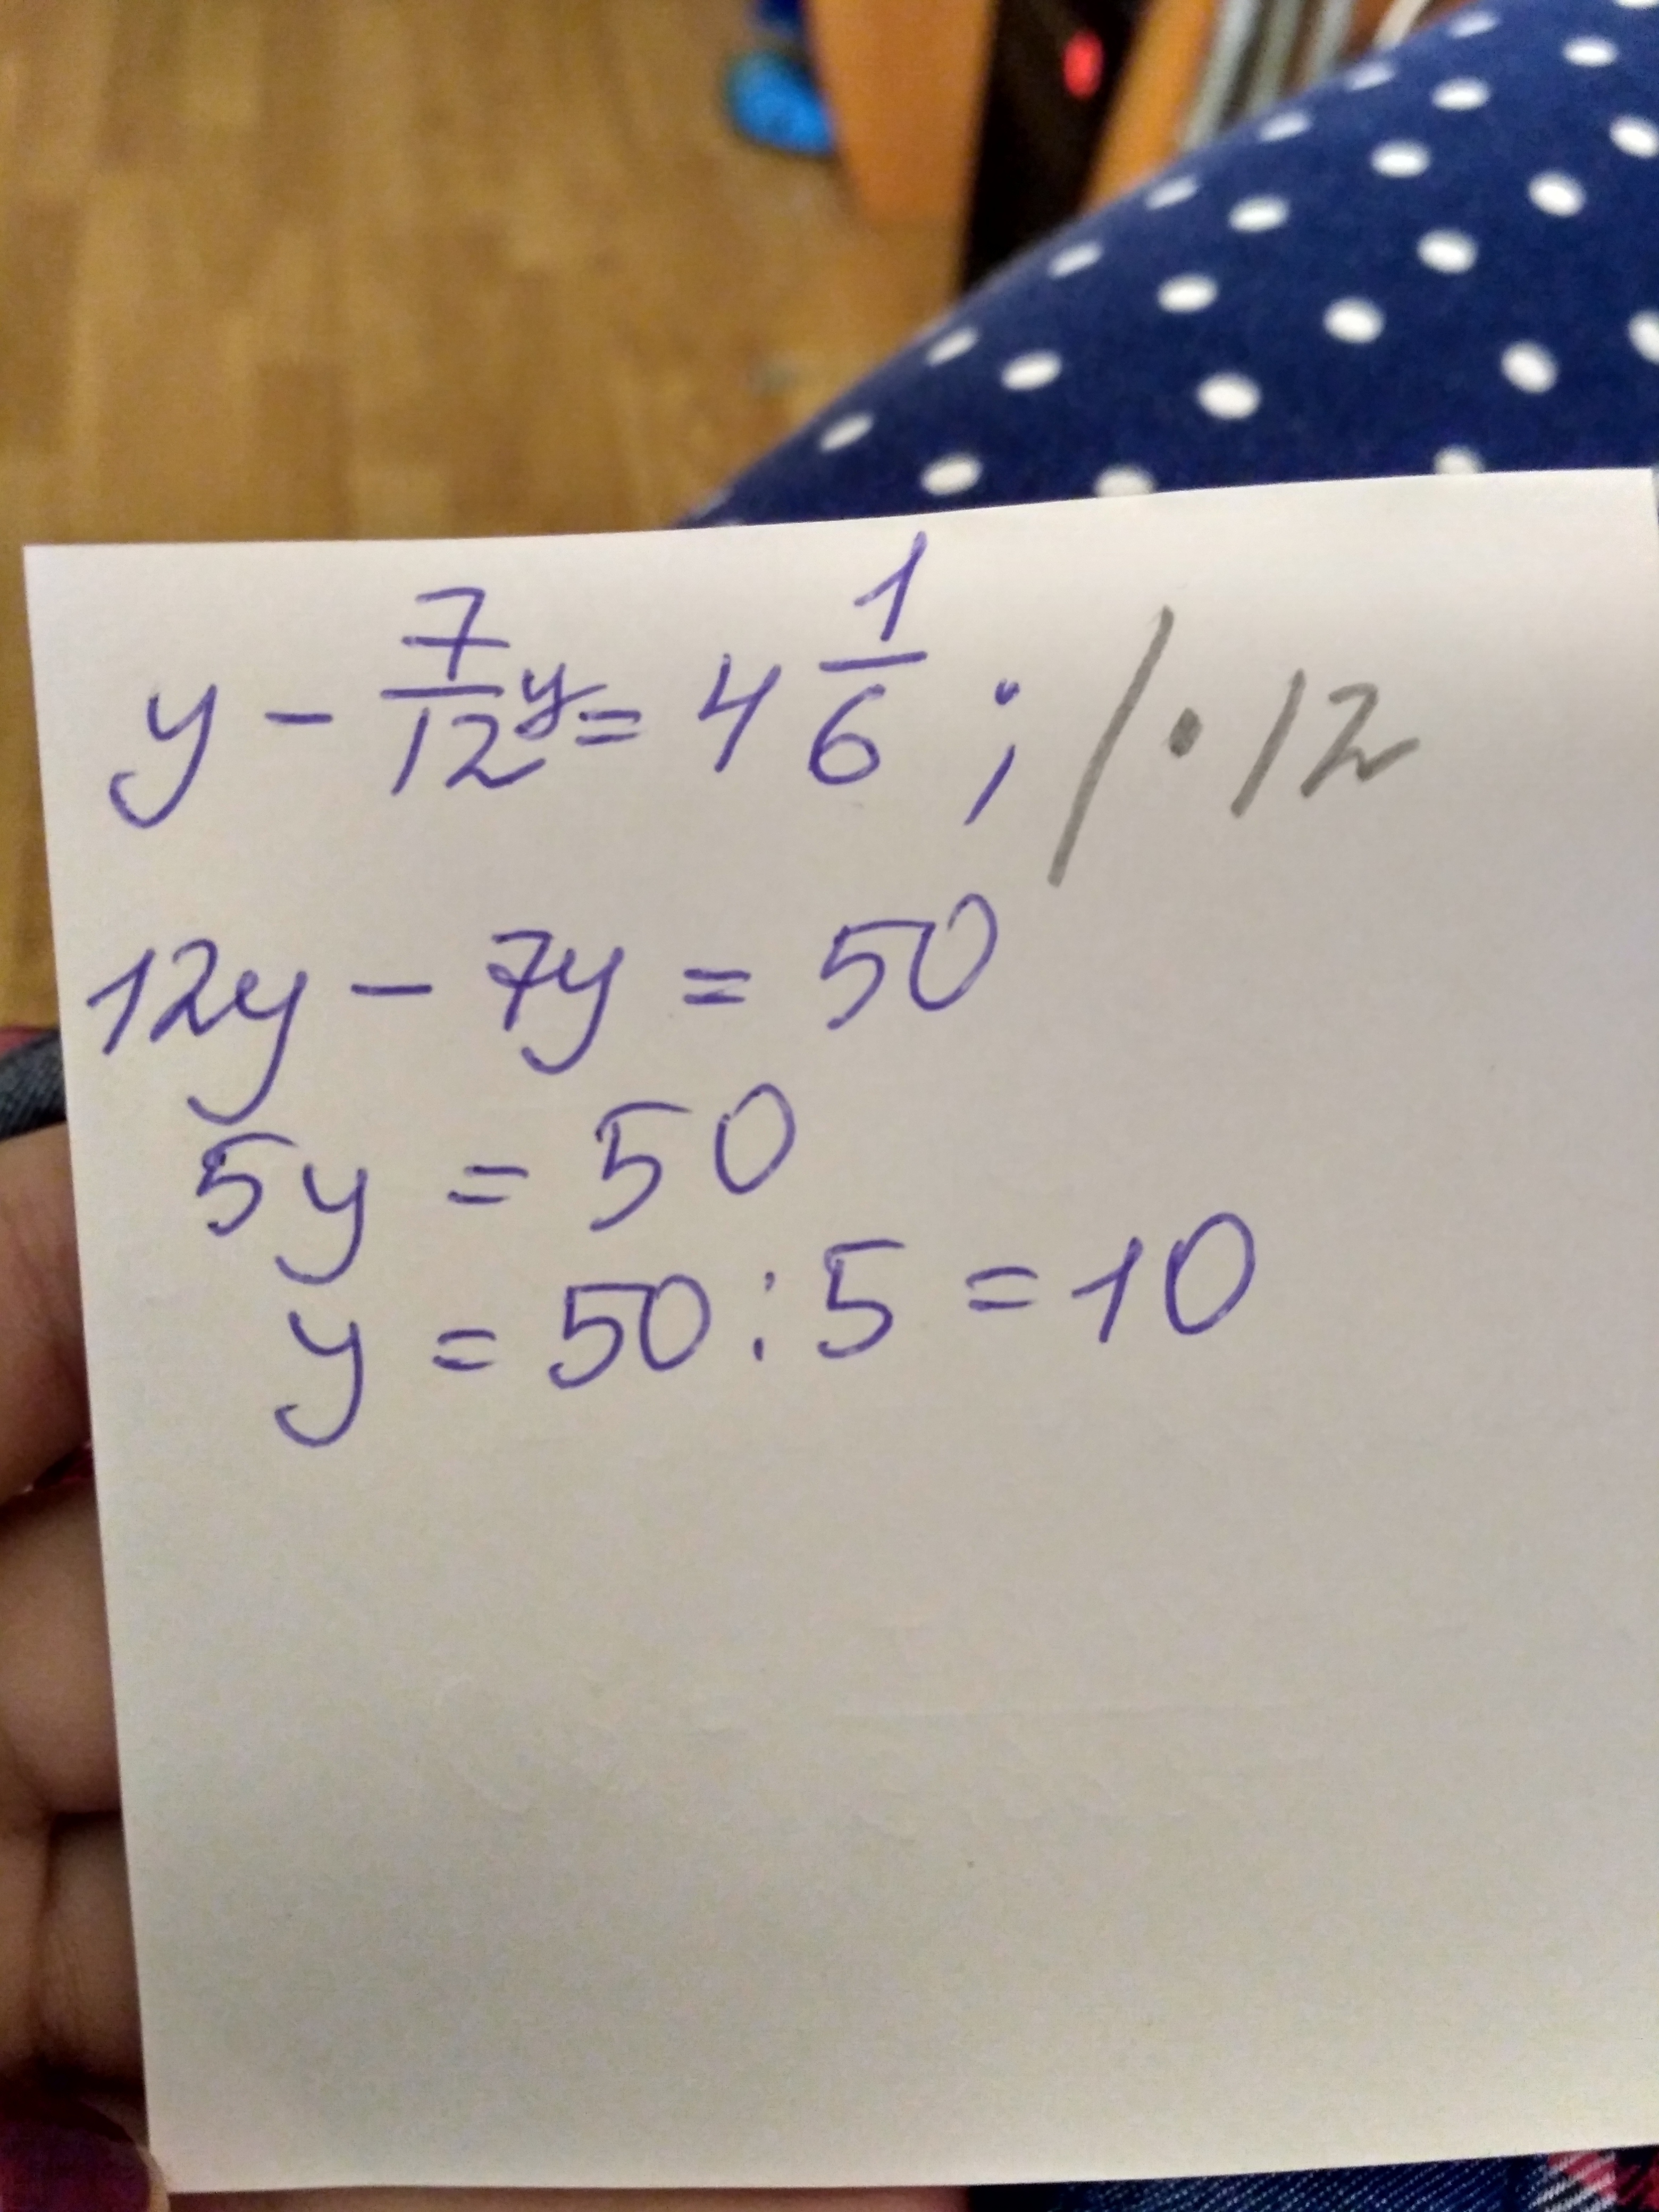 y - 7/12 y = 4 1/6 ; / · 12
12y - 7y = 50
5y = 50
y = 50 : 5 = 10